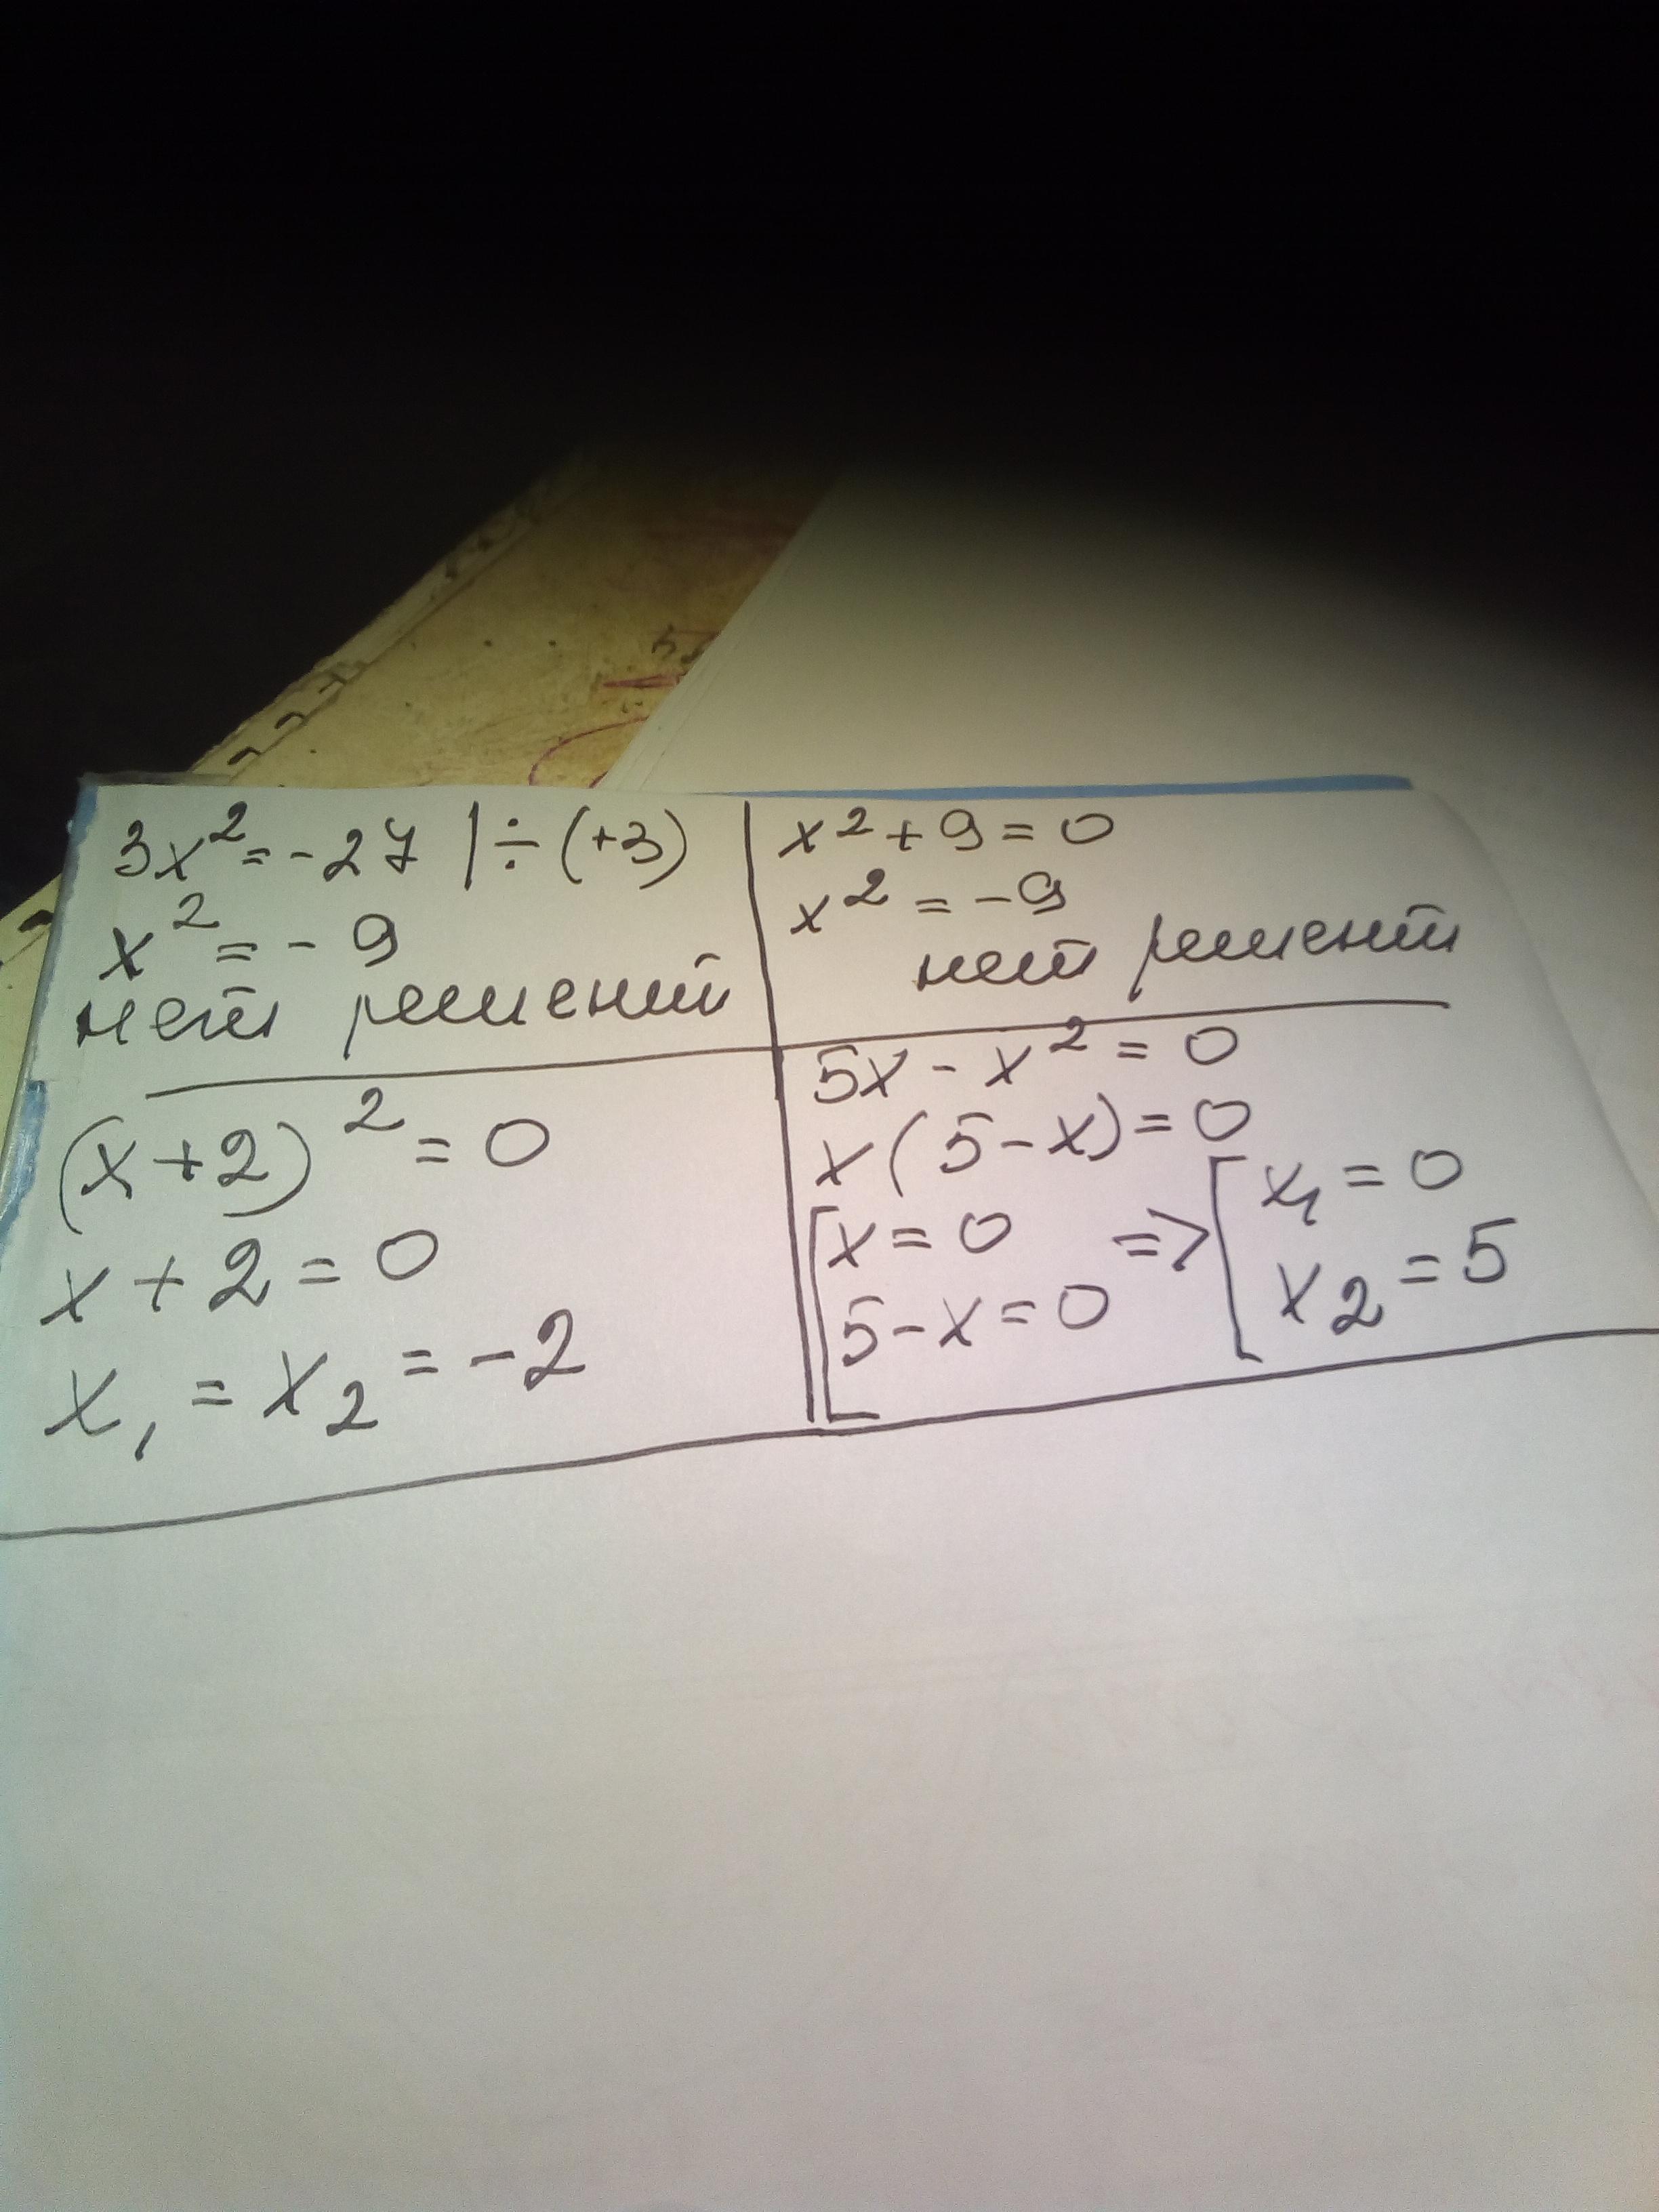 3x² = -27 | ÷ (+3)
x² = -9
нет решений
x² + 9 = 0
x² = -9
нет решений
(x+2)² = 0
x + 2 = 0
x₁ = x₂ = -2
5x - x² = 0
x(5-x) = 0
[ x = 0 => [ x₁ = 0
5-x = 0 x₂ = 5